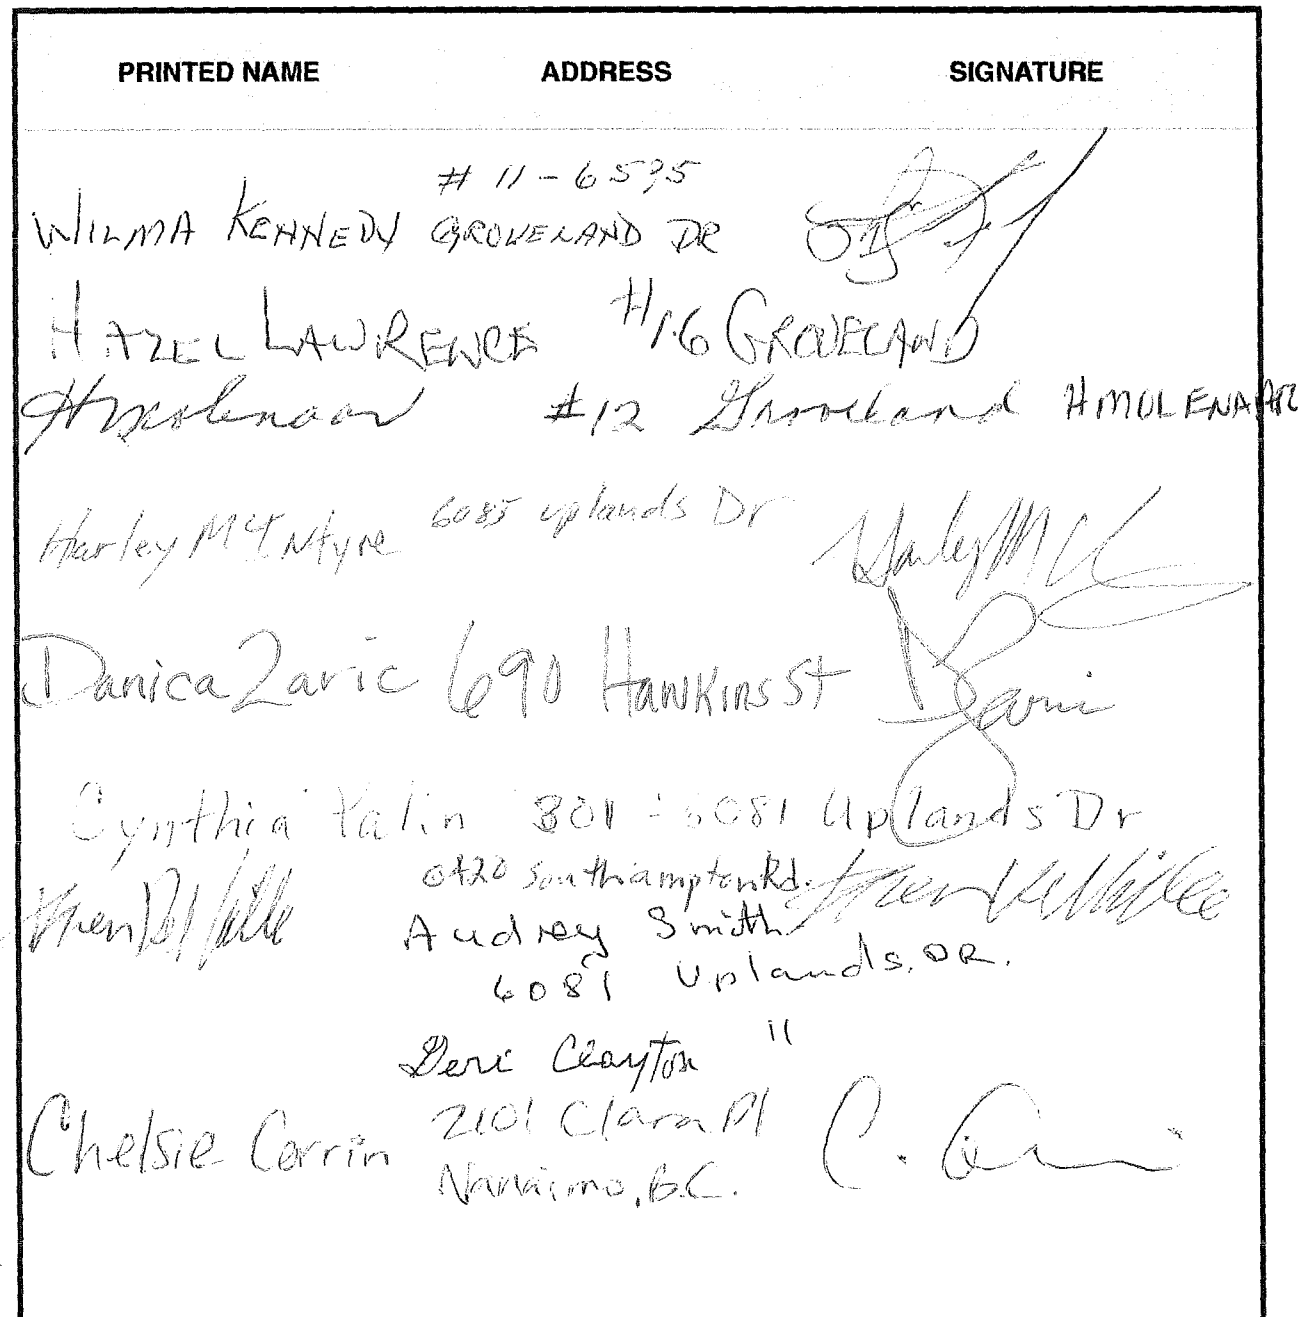 PRINTED NAME ADDRESS SIGNATURE
# 11-6595
WILMA KENNEDY GROVELAND DR
HAZEL LAWRENCE #16 GROVELAND
HMolenaar #12 Groveland HMOLENAAR
Harley McIntyre 6085 uplands Dr Harley Mc
Danica Zaric 690 Hawkins St DZaric
Cynthia 801 - 6081 Uplands Dr
Southampton Rd.
Audrey Smith
6081 Uplands. DR.
Clayton "
Chelsie Corrin 2101 Clara Pl
Nanaimo, B.C.